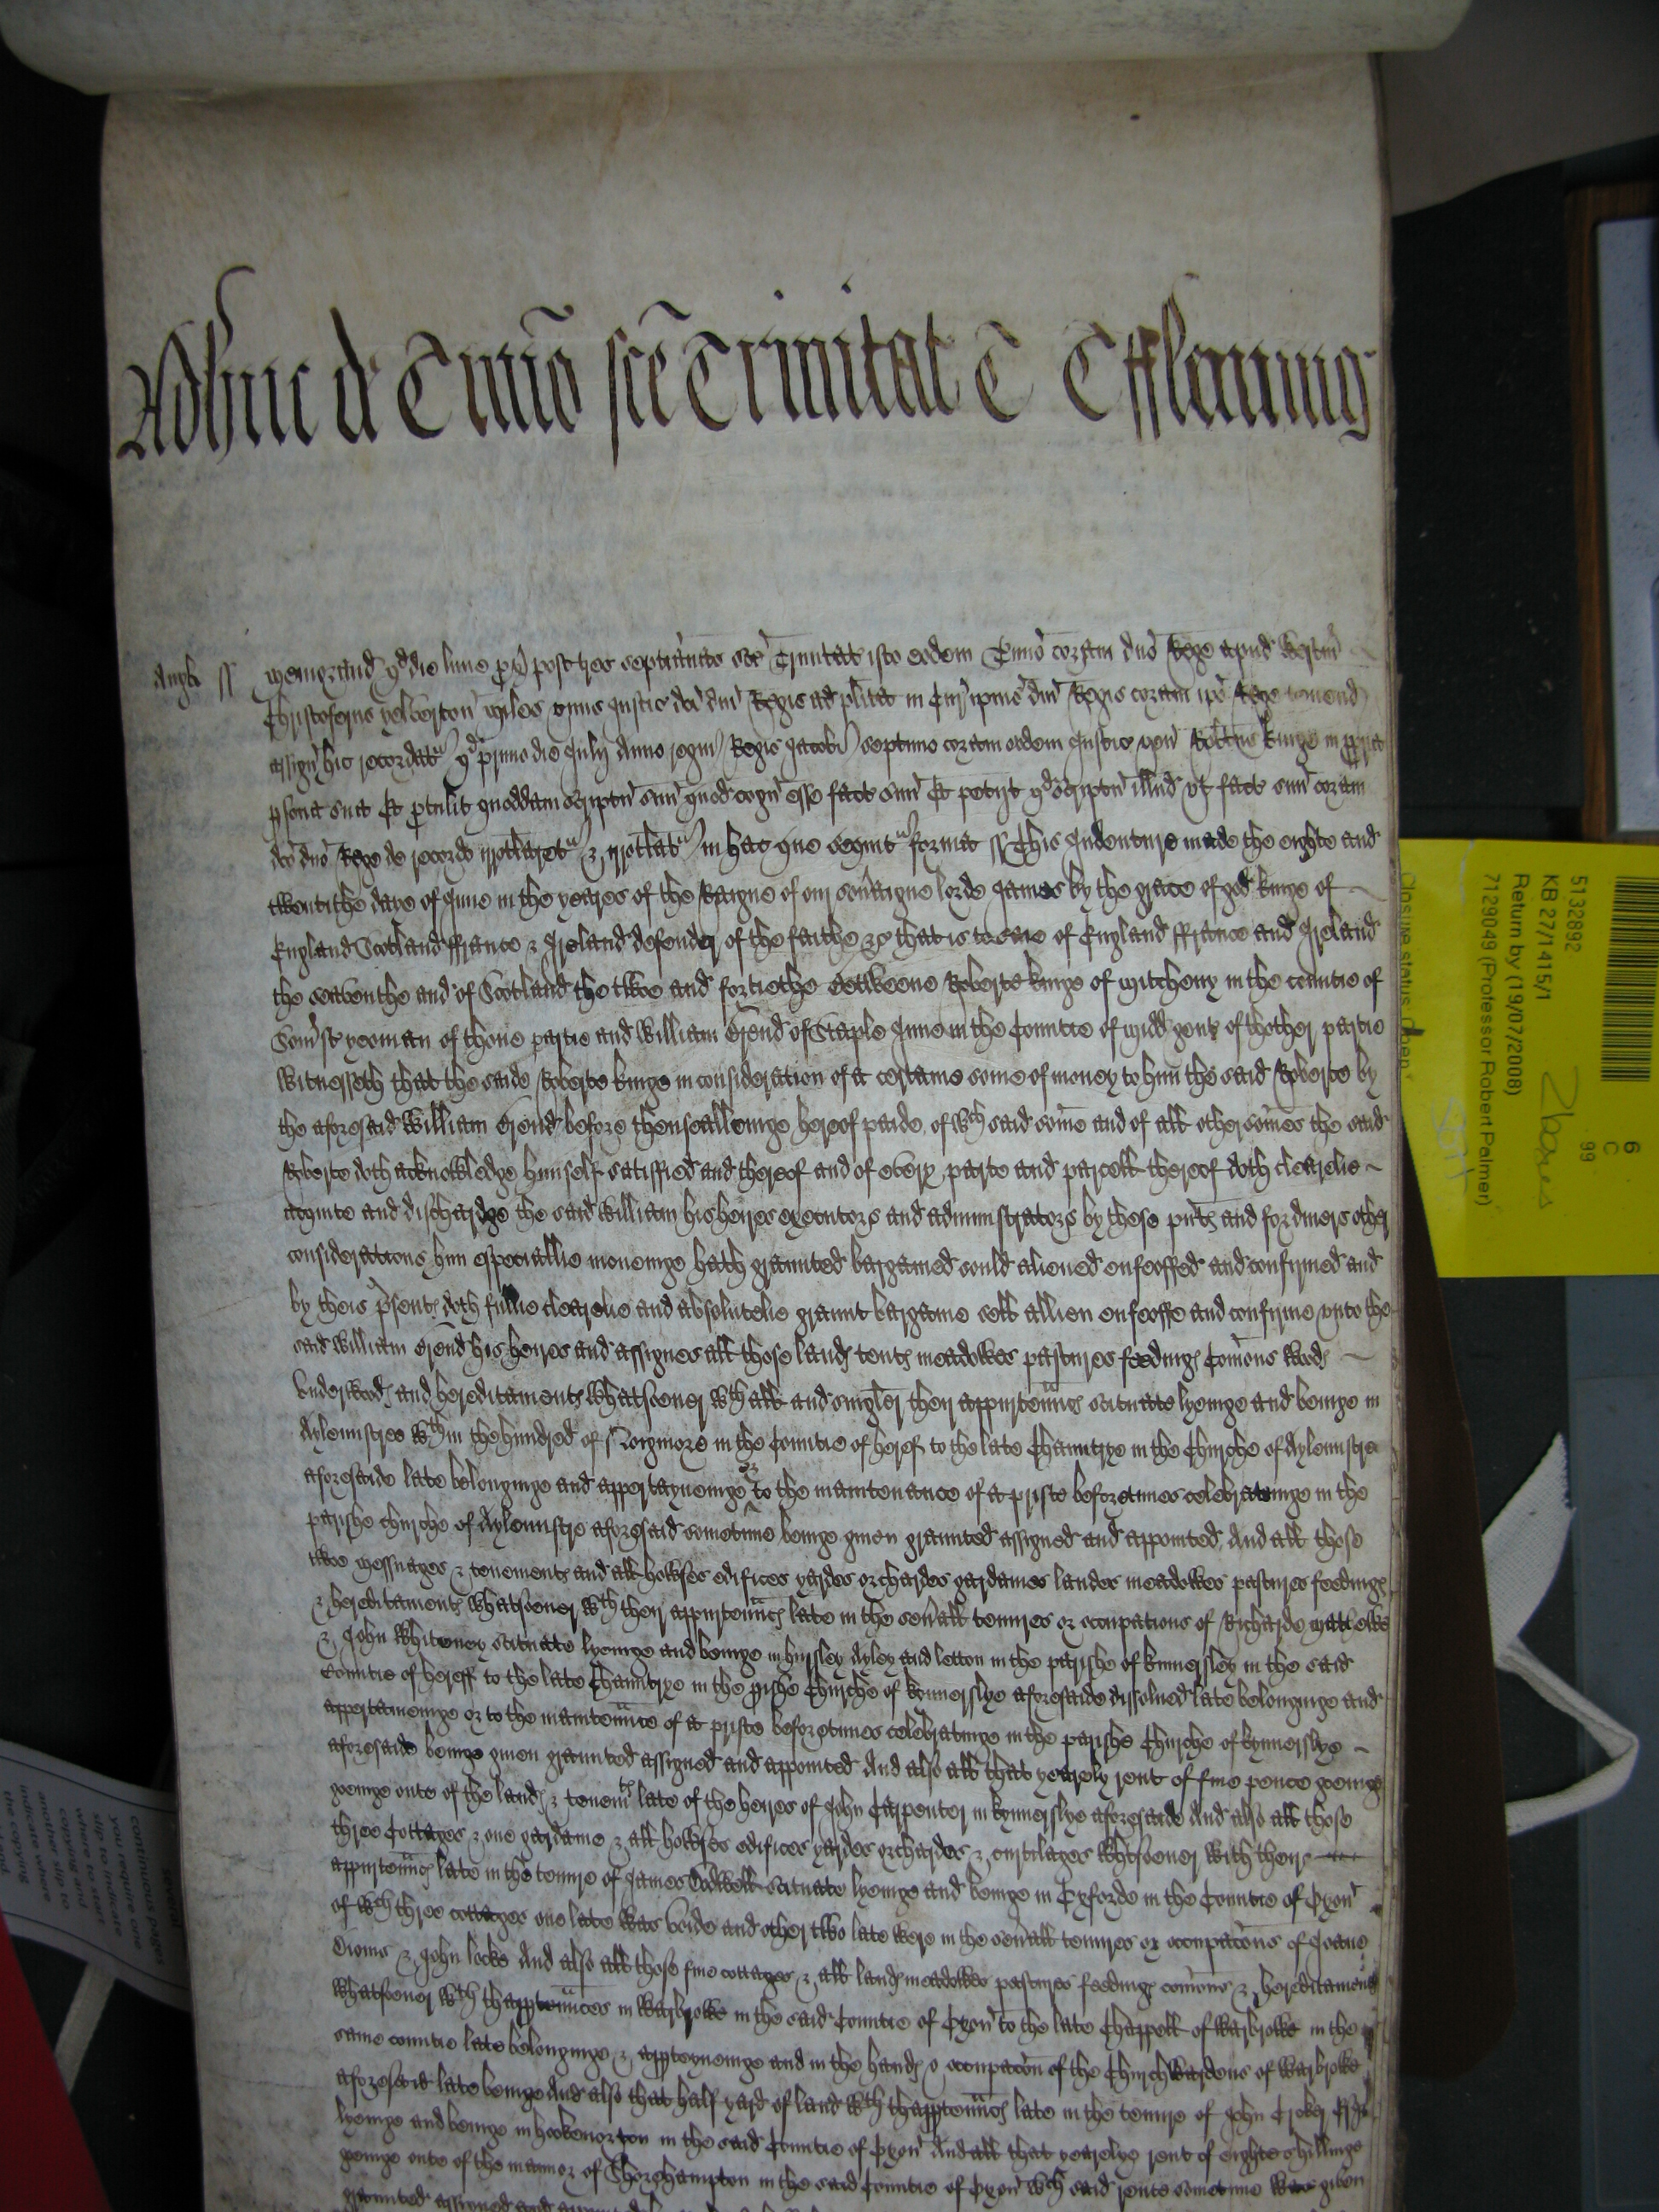 Adhuc de Tmino sce Trinitat T Fflemmig
Angl ss Memorand qd die lune px post tres septimanas sce Trinitat isto eodem Tmino coram dno Rege apud Westm
Christoferus yelverton miles unus Justic dci dni Regis ad plita in Cur ipius dni Regis coram ipo Rege tenend
assign hic recordatr qd primo die July Anno regni Regis Jacobi septimo coram eodem Justic ven Robtus kinge in ppria
psona sua Et ptulit quoddam scriptm suu quod cogn esse factu suu Et petijt qd scriptm illud ut factu suu coram
dco dno Rege de recordo irrotlaretr & irrotlatr in hac que sequitr forma ss This Indenture made the eighte and
twentithe daye of June in the yeares of the Raigne of our sovaigne lorde James by the grace of god kinge of
England Scotland ffrance & Ireland defender of the faithe &c that is to saie of England ffrance and Ireland
the seaventhe and of Scotland the twoe and fortiethe Betweene Roberte kinge of Mitcheny in the countie of
Somst yeoman of thone partie and William Grend of Staple Inne in the Countie of Midd gent of thother partie
Witnesseth that the saide Roberte kinge in consideration of a certaine some of money to him the said Roberte by
the aforesaid William Grend before thensealleinge hereof paide of wch said some and of all other somes the said
Roberte doth acknowledge himself satisfied and thereof and of every parte and parcell thereof doth clearelie
acquite and dischardge the said William his heires executors and administrators by these pnts and for divers other
considerations him especiallie moveinge hath graunted bargained sould aliened enfeoffed and confirmed and
by theis psents doth fullie clearelie and absolutelie graunt bargaine sell allien enfeoffe and confirme unto the
said William Grend his heires and assignes all those lands tents meadowes pastures feedings comons woods
underwoods and hereditaments whatsoever wth all and singler their appurtennces scituate lyeinge and beinge in
Aylemstree wthin the hundred of in the Countie of heref to the late Chauntrye in the Churche of Aylemstre
aforesaide late belonginge and appertayneinge or to the maintenance of a priste beforetimes celebratinge in the
parishe churche of Aylemstre aforesaid sometime beinge given graunted assigned and appointed And all those
twoe messuages & tenements and all howses edifices yardes orchardes gardaines landes meadowes pastures feedings
& hereditaments whatsoever wth their appurtennces late in the sevall tenures or occupations of Richarde
& John Whiteney scituate lyeinge and beinge in hursley Ayley and letton in the parishe of kinnersley in the said
Countie of hereff to the late Chauntrye in the pishe Churche of kynnerslye aforesaide dissolved late belonginge and
appertaineinge or to the maintennce of a priste beforetimes celebratinge in the parishe Churche of kynnerslye
aforesaid beinge given graunted assigned and appointed And also all that yearely rent of five pence goeinge
goeinge oute of the lands & tenemts late of the heires of John Carpenter in kynnerslye aforesaide And also all those
three Cottages & one gardaine & all howses edifices yardes orchardes & curtilages whatsoever with theire
appurtennces late in the tenure of James scituate lyeinge and beinge in Oxforde in the Countie of Oxon
of wch three cottages one late was voide and other two late were in the sevall tenures or occupacons of Joane
& John locke And also all those five cottages & all lands meadowes pastures feedings comons & hereditaments
whatsoever wth thapptennces in Warbrowe in the said Countie of Oxon to the late Chappell of Warbrowe in the
same countie late belonginge & apptayneinge and in the hands & occupacon of the Churchwardens of Warbroke
aforesaid late beinge And also that half yard of land wth thapptennces late in the tenure of John Croker
lyeinge and beinge in hookenorton in the said Countie of Oxon And all that yearelye rent of eighte shillinge
goeinge oute of the mannor of in the said Countie of Oxon wch said rente sometime was given
graunted assigned and
5132892
KB 27/1415/1
Return by (19/07/2008)
7129049 (Professor Robert Palmer)
6
C
99
Closure status Open
several
continuous pages
you require one
slip to indicate
where to start
copying and
another slip to
indicate where
the copying